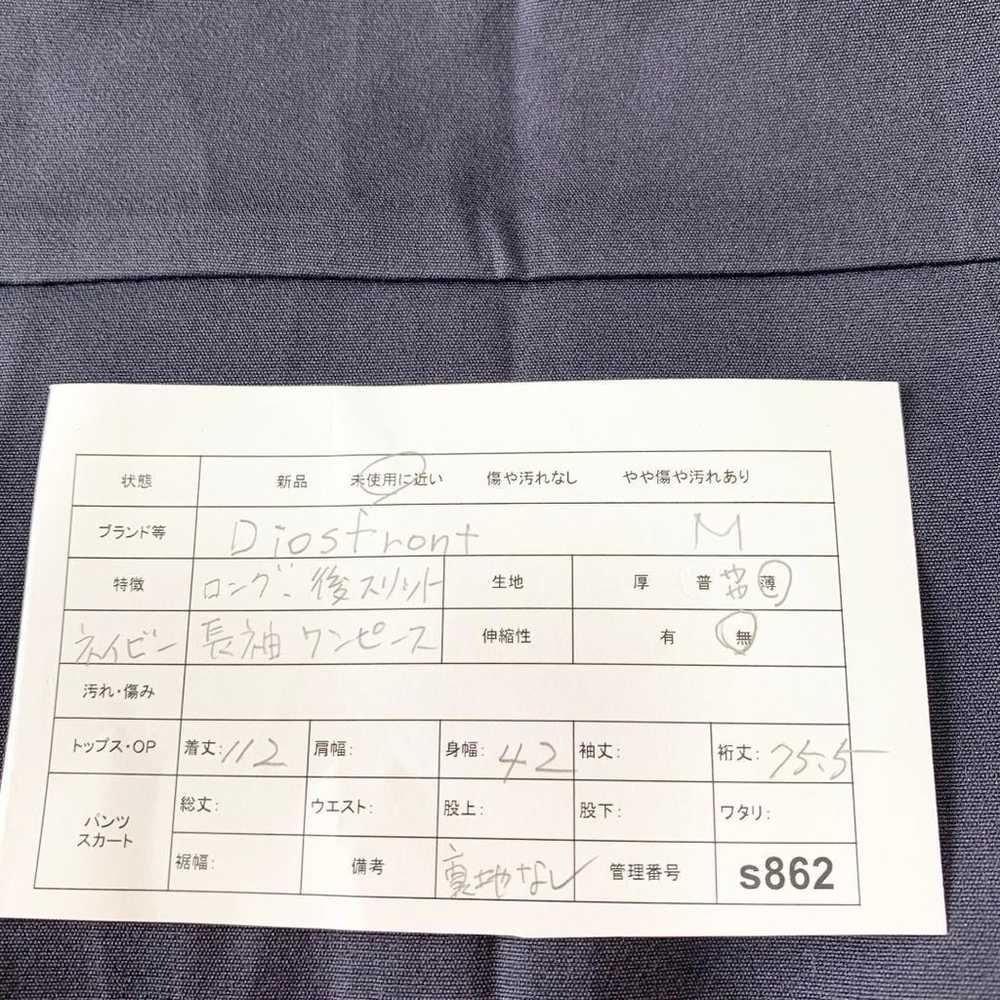 状態 新品 未使用に近い 傷や汚れなし やや傷や汚れあり
ブランド等 Diosfront M
特徴 ロング、後スリット 生地 厚 普 やや 薄
ネイビー 長袖ワンピース 伸縮性 有 無
汚れ・傷み
トップス・OP 着丈:112 肩幅: 身幅:42 袖丈: 裄丈:75.5
パンツ スカート 総丈: ウエスト: 股上: 股下: ワタリ:
裾幅: 備考 裏地なし 管理番号 s862